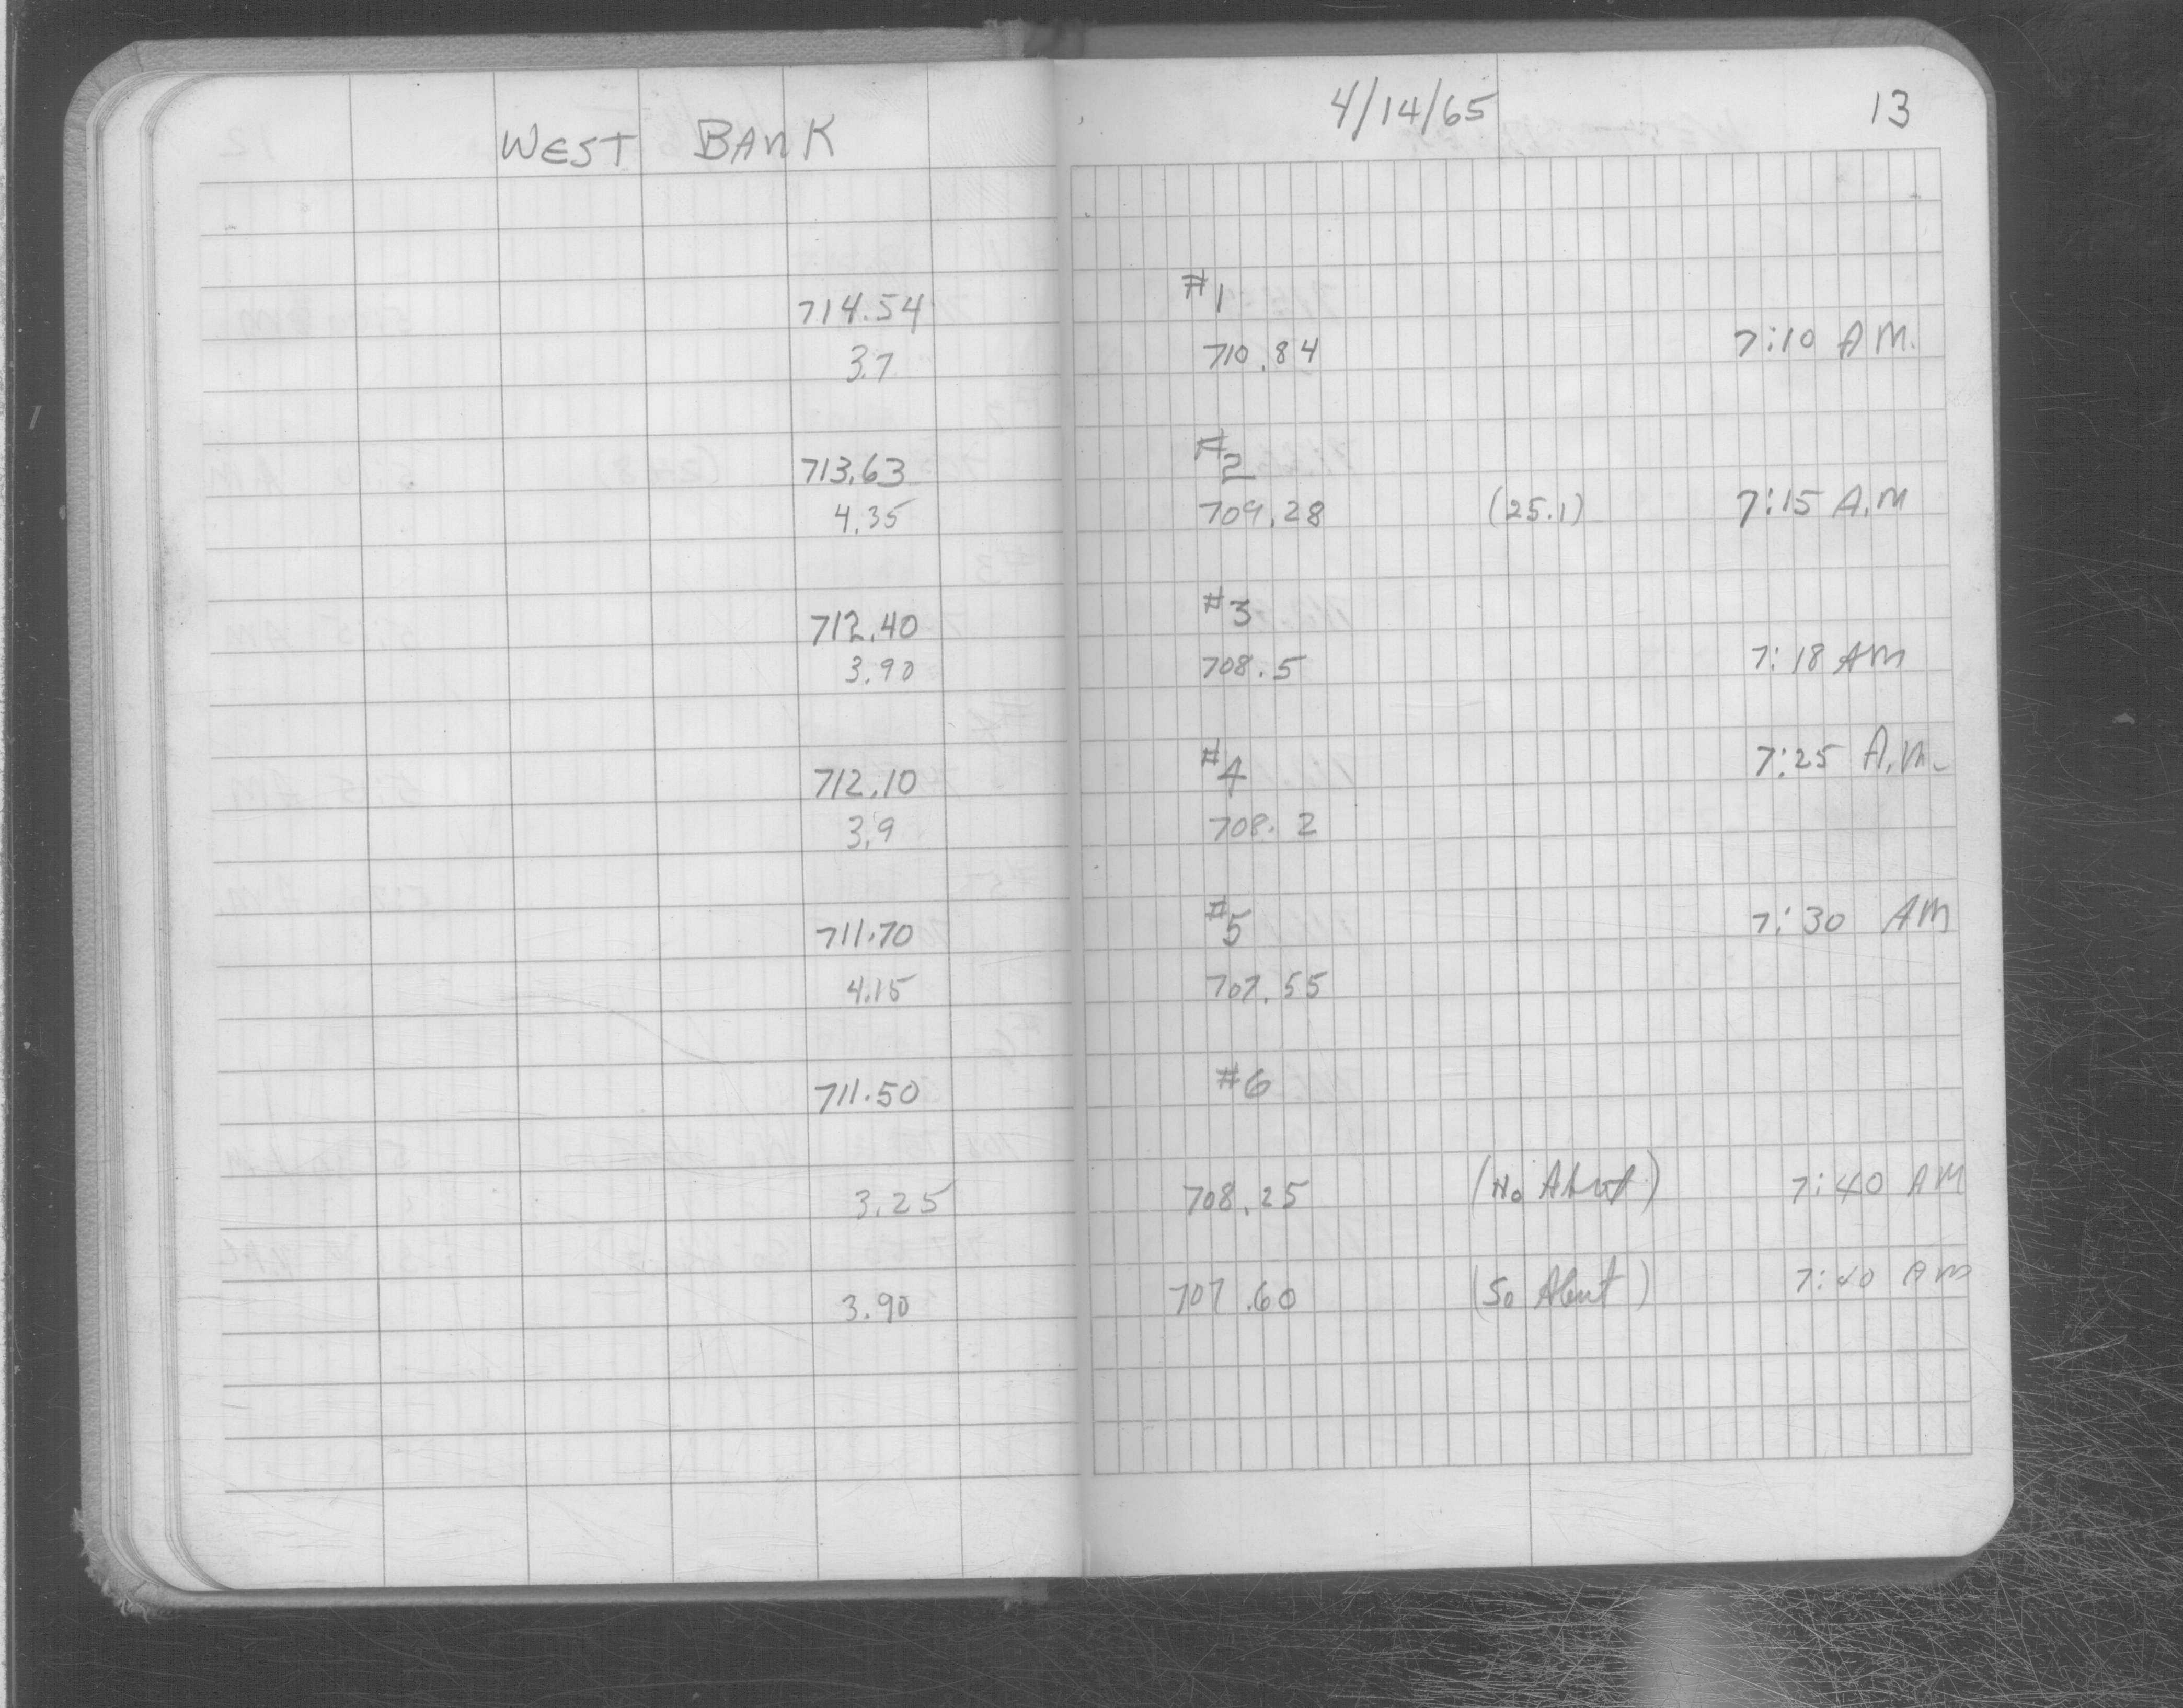 WEST BANK
4/14/65 13
#1
714.54
3.7 710.84 7:10 A.M.
#2
713.63
4.35 709.28 (25.1) 7:15 A.M
#3
712.40
3.90 708.5 7:18 AM
#4 7:25 A.M.
712.10
3.9 708.2
#5 7:30 AM
711.70
4.15 707.55
#6
711.50
3.25 708.25 (No Abut) 7:40 AM
3.90 707.60 (So Abut) 7:40 AM